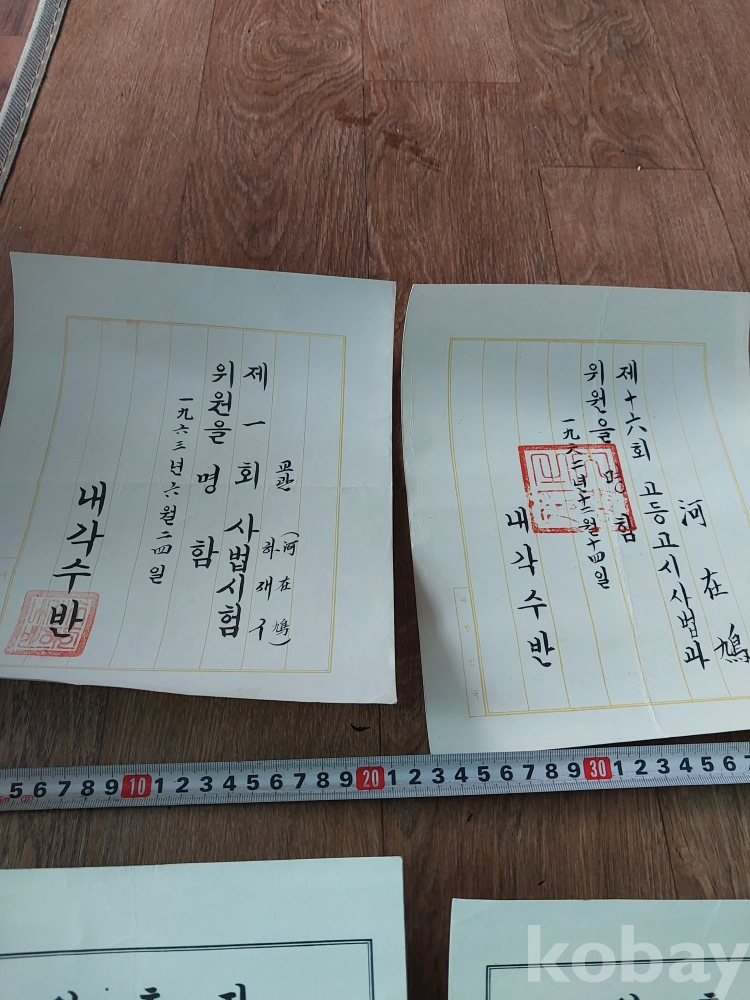 교관 (河在鳩)
하재구
제一회 사법시험
위원을 명함
一九六三년 六월 二四일
내각수반
河在鳩
제十六회 고등고시사법과
위원을 명함
一九六二년十二월十四일
내각수반
5 6 7 8 9 10 1 2 3 4 5 6 7 8 9 20 1 2 3 4 5 6 7 8 9 30 1 2 3 4 5 6
kobay